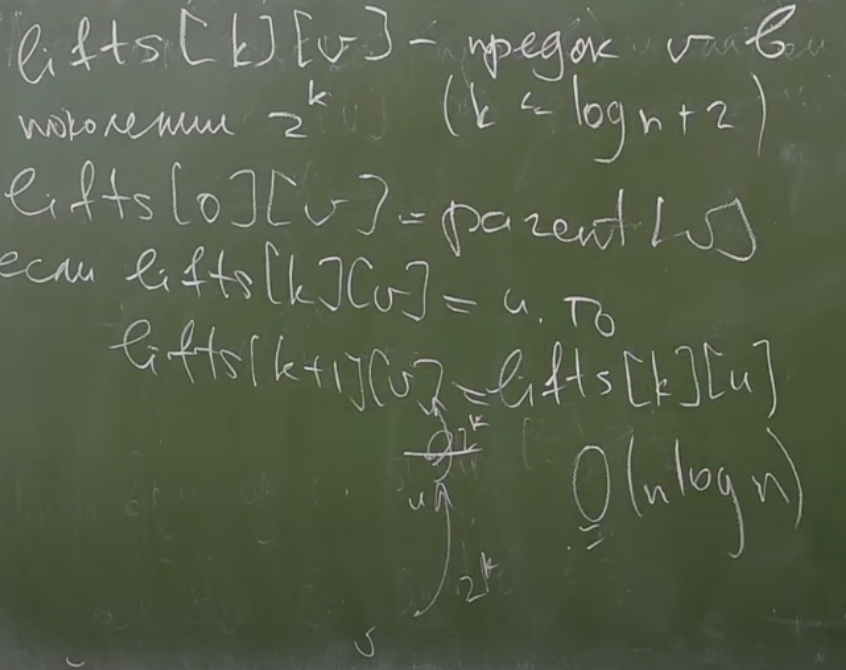 lifts[k][v] - предок v в
поколении 2^k (k < log n + 2)
lifts[0][v] = parent[v]
если lifts[k][v] = u, то
lifts[k+1][v] = lifts[k][u]
2^k
u
O(n log n)
2^k
v